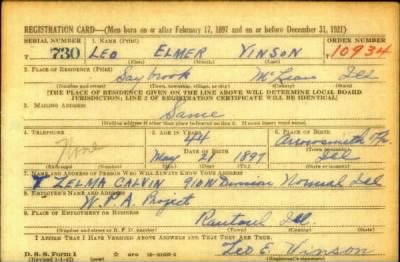 REGISTRATION CARD—(Men born on or after February 17, 1897 and on or before December 31, 1921)
SERIAL NUMBER 1. NAME (Print) ORDER NUMBER
T 730 LEO ELMER VINSON 10934
(First) (Middle) (Last)
2. PLACE OF RESIDENCE (Print)
Saybrook McLean Ill
(Number and street) (Town, township, village, or city) (County) (State)
[THE PLACE OF RESIDENCE GIVEN ON THE LINE ABOVE WILL DETERMINE LOCAL BOARD
JURISDICTION; LINE 2 OF REGISTRATION CERTIFICATE WILL BE IDENTICAL]
3. MAILING ADDRESS
Same
(Mailing address if other than place indicated on line 2. If same insert word same)
4. TELEPHONE 5. AGE IN YEARS 6. PLACE OF BIRTH
None 44 Arrowsmith
DATE OF BIRTH (Town or county)
May 21 1897 Ill
(Exchange) (Number) (Mo.) (Day) (Yr.) (State or country)
7. NAME AND ADDRESS OF PERSON WHO WILL ALWAYS KNOW YOUR ADDRESS
ZELMA CALVIN 910 W Division Normal Ill
8. EMPLOYER'S NAME AND ADDRESS
W.P.A. Project
9. PLACE OF EMPLOYMENT OR BUSINESS
Rantoul Ill.
(Number and street or R. F. D. number) (Town) (County) (State)
I AFFIRM THAT I HAVE VERIFIED ABOVE ANSWERS AND THAT THEY ARE TRUE.
D. S. S. Form 1 Leo E. Vinson
(Revised 1-1-42) (over) (Registrant's signature)